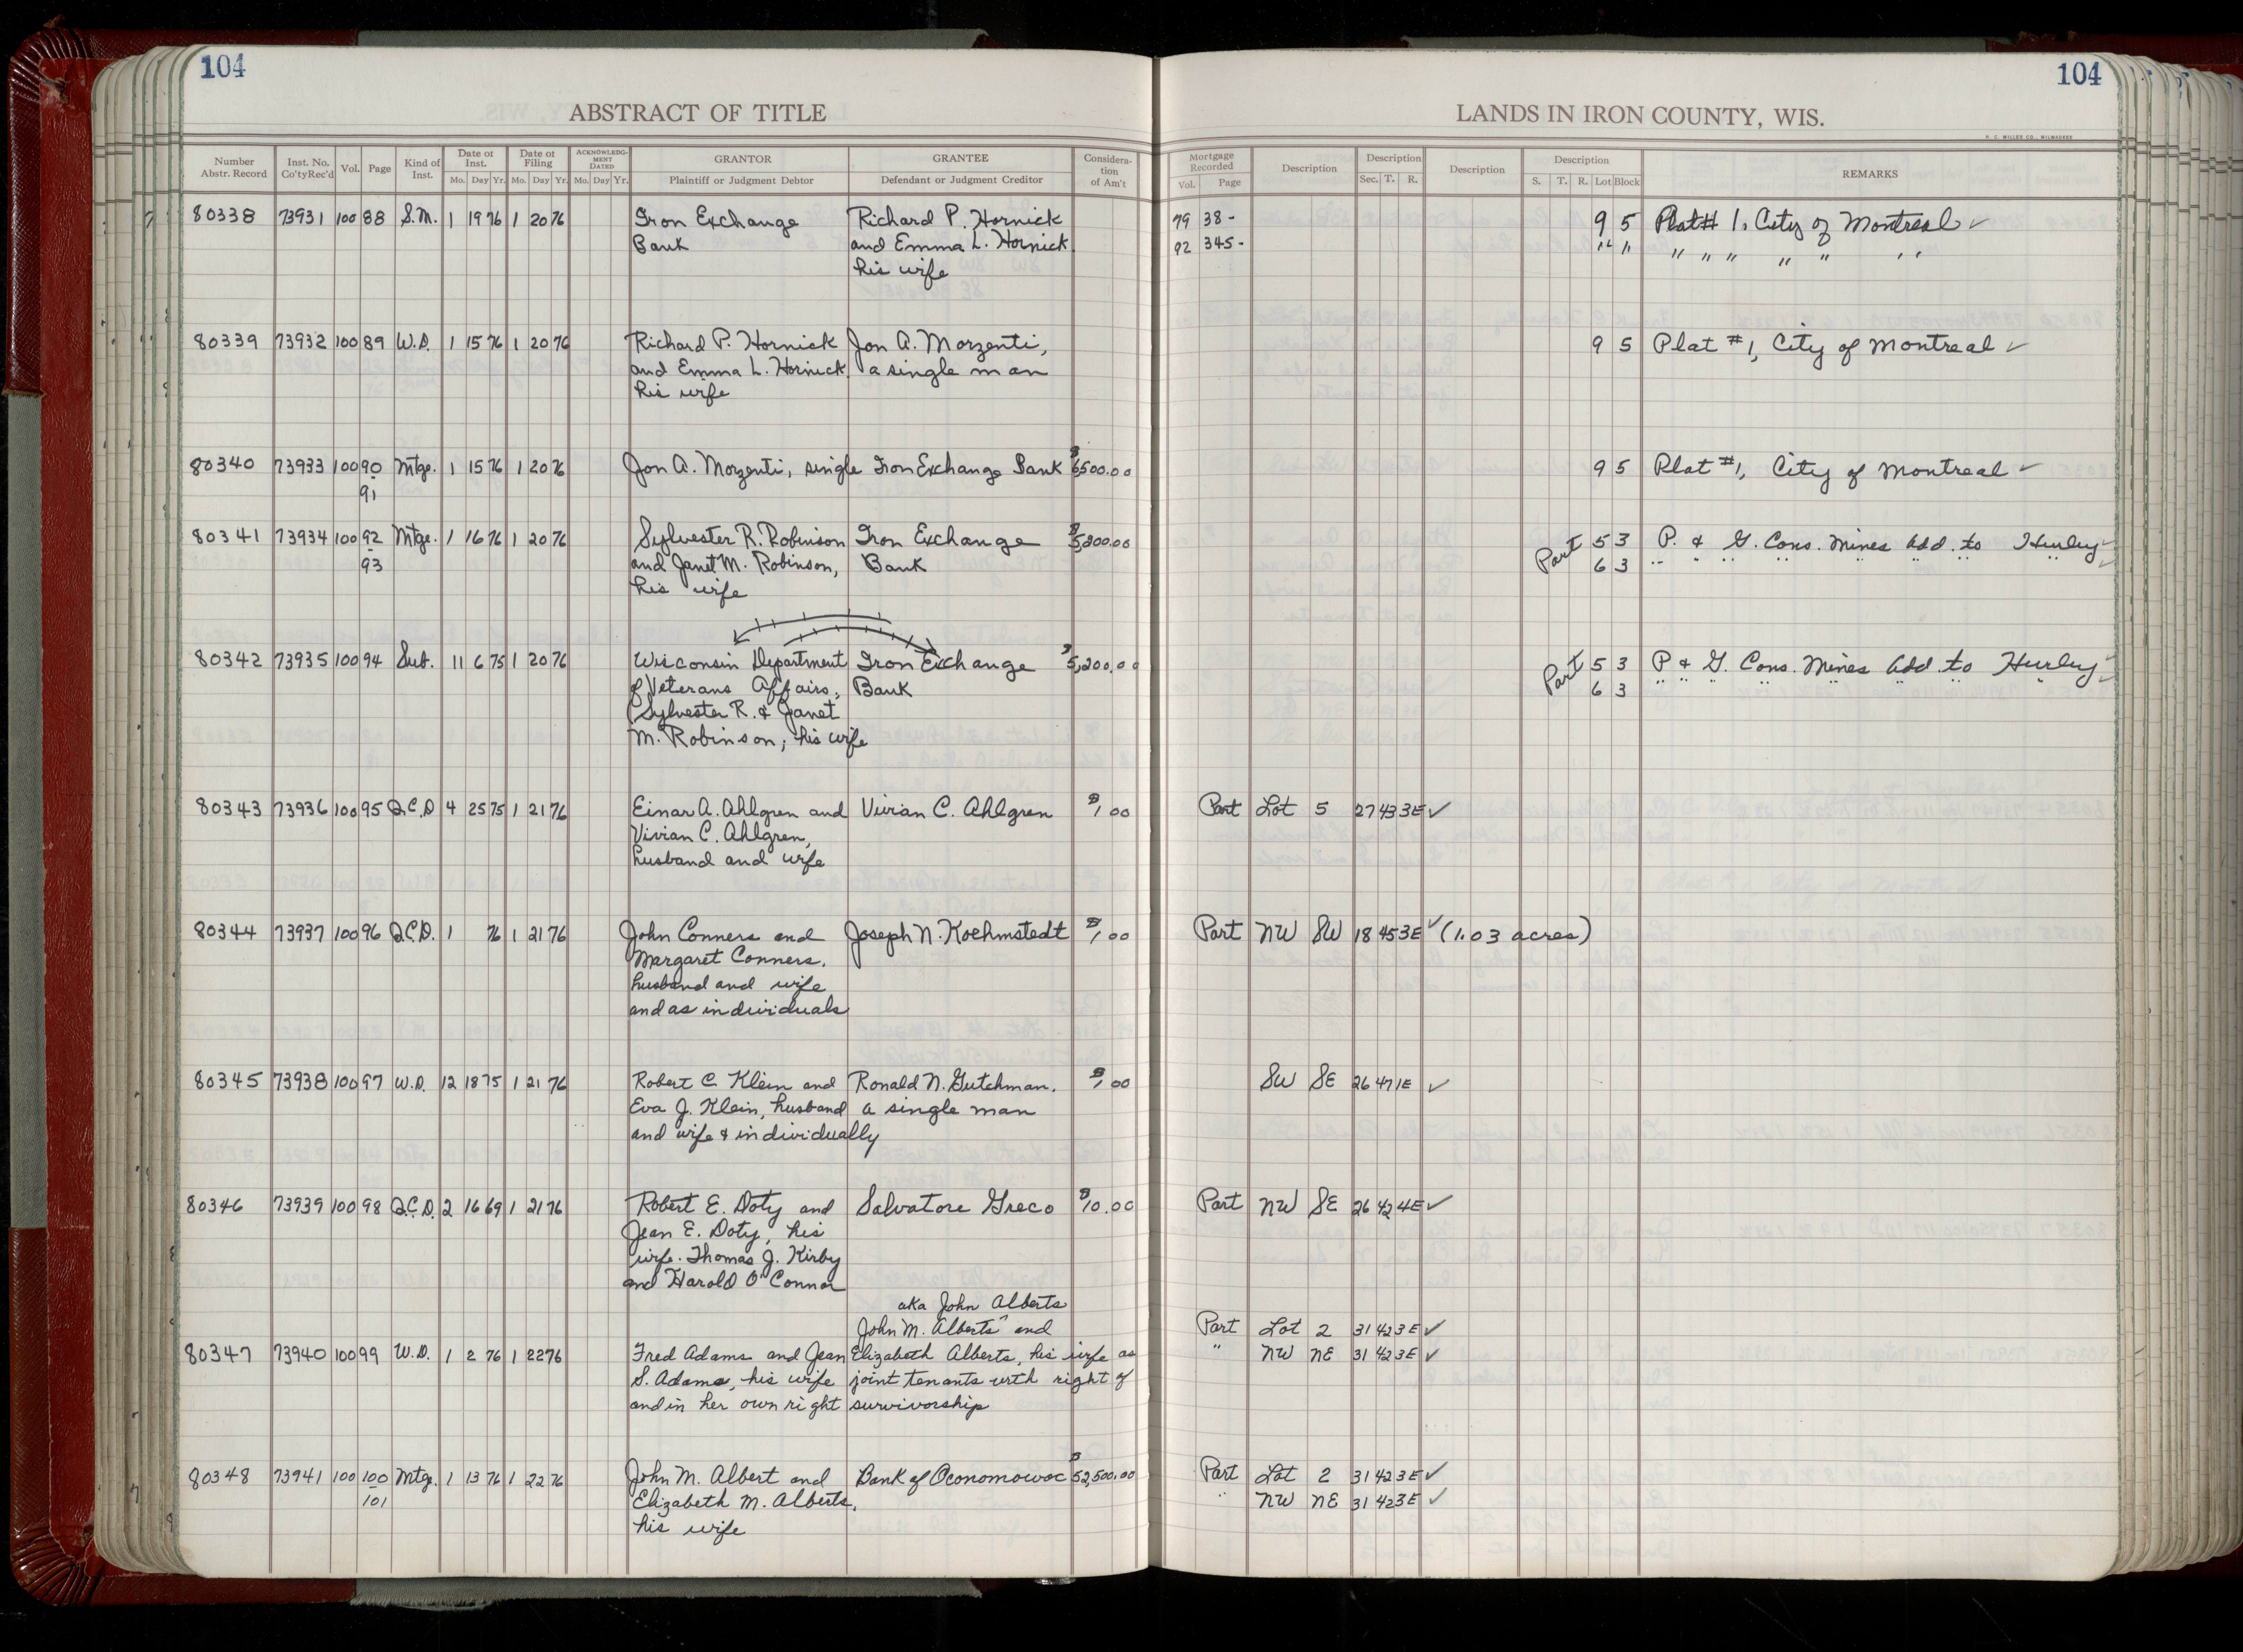 104
104
ABSTRACT OF TITLE
LANDS IN IRON COUNTY, WIS.
H. C. MILLER CO., MILWAUKEE
Number Abstr. Record Inst. No. Co'ty Rec'd Vol. Page Kind of Inst. Date of Inst. Mo. Day Yr. Date of Filing Mo. Day Yr. ACKNOWLEDGMENT DATED Mo. Day Yr. GRANTOR Plaintiff or Judgment Debtor GRANTEE Defendant or Judgment Creditor Consideration of Am't Mortgage Recorded Vol. Page Description Description Sec. T. R. Description Description S. T. R. Lot Block REMARKS
80338 73931 100 88 S.M. 1 19 76 1 20 76 Iron Exchange Richard P. Hornick 79 38- 9 5 Plat# 1, City of Montreal ✓
Bank and Emma L. Hornick 92 345- " " " " " " " "
his wife
80339 73932 100 89 W.D. 1 15 76 1 20 76 Richard P. Hornick Jon A. Morzenti, 9 5 Plat #1, City of Montreal ✓
and Emma L. Hornick, a single man
his wife
80340 73933 100 90 Mtge. 1 15 76 1 20 76 Jon A. Morzenti, single Iron Exchange Bank $6500.00 9 5 Plat #1, City of Montreal ✓
-91
80341 73934 100 92 Mtge. 1 16 76 1 20 76 Sylvester R. Robinson Iron Exchange $5,800.00 Part 5 3 P. & G. Cons. Mines Add. to Hurley ✓
-93 and Janet M. Robinson, Bank 6 3 " " " " " " " ✓
his wife
80342 73935 100 94 Sub. 11 6 75 1 20 76 Wisconsin Department Iron Exchange $5,200.00 Part 5 3 P & G. Cons. Mines Add. to Hurley ✓
of Veterans Affairs, Bank 6 3 " " " " " " " ✓
(Sylvester R. & Janet
M. Robinson, his wife
80343 73936 100 95 Q.C.D 4 25 75 1 21 76 Einar A. Ahlgren and Vivian C. Ahlgren $1.00 Part Lot 5 27 43 3E ✓
Vivian C. Ahlgren,
husband and wife
80344 73937 100 96 Q.C.D. 1 76 1 21 76 John Conners and Joseph N. Koehmstedt $1.00 Part NW SW 18 45 3E ✓ (1.03 acres)
Margaret Conners,
husband and wife
and as individuals
80345 73938 100 97 W.D. 12 18 75 1 21 76 Robert C. Klein and Ronald N. Gutchman, $1.00 SW SE 26 47 1E ✓
Eva J. Klein, husband a single man
and wife & individually
80346 73939 100 98 Q.C.D. 2 16 69 1 21 76 Robert E. Doty and Salvatore Greco $10.00 Part NW SE 26 42 4E ✓
Jean E. Doty, his
wife. Thomas J. Kirby
and Harold O'Connor
aka John Alberts
John M. Alberts ^ and Part Lot 2 31 42 3E ✓
80347 73940 100 99 W.D. 1 2 76 1 22 76 Fred Adams and Jean Elizabeth Alberts, his wife as " NW NE 31 42 3E ✓
S. Adams, his wife joint tenants with right of
and in her own right survivorship
80348 73941 100 100 Mtg. 1 13 76 1 22 76 John M. Albert and Bank of Oconomowoc $52,500.00 Part Lot 2 31 42 3E ✓
-101 Elizabeth M. Alberts, " NW NE 31 42 3E ✓
his wife